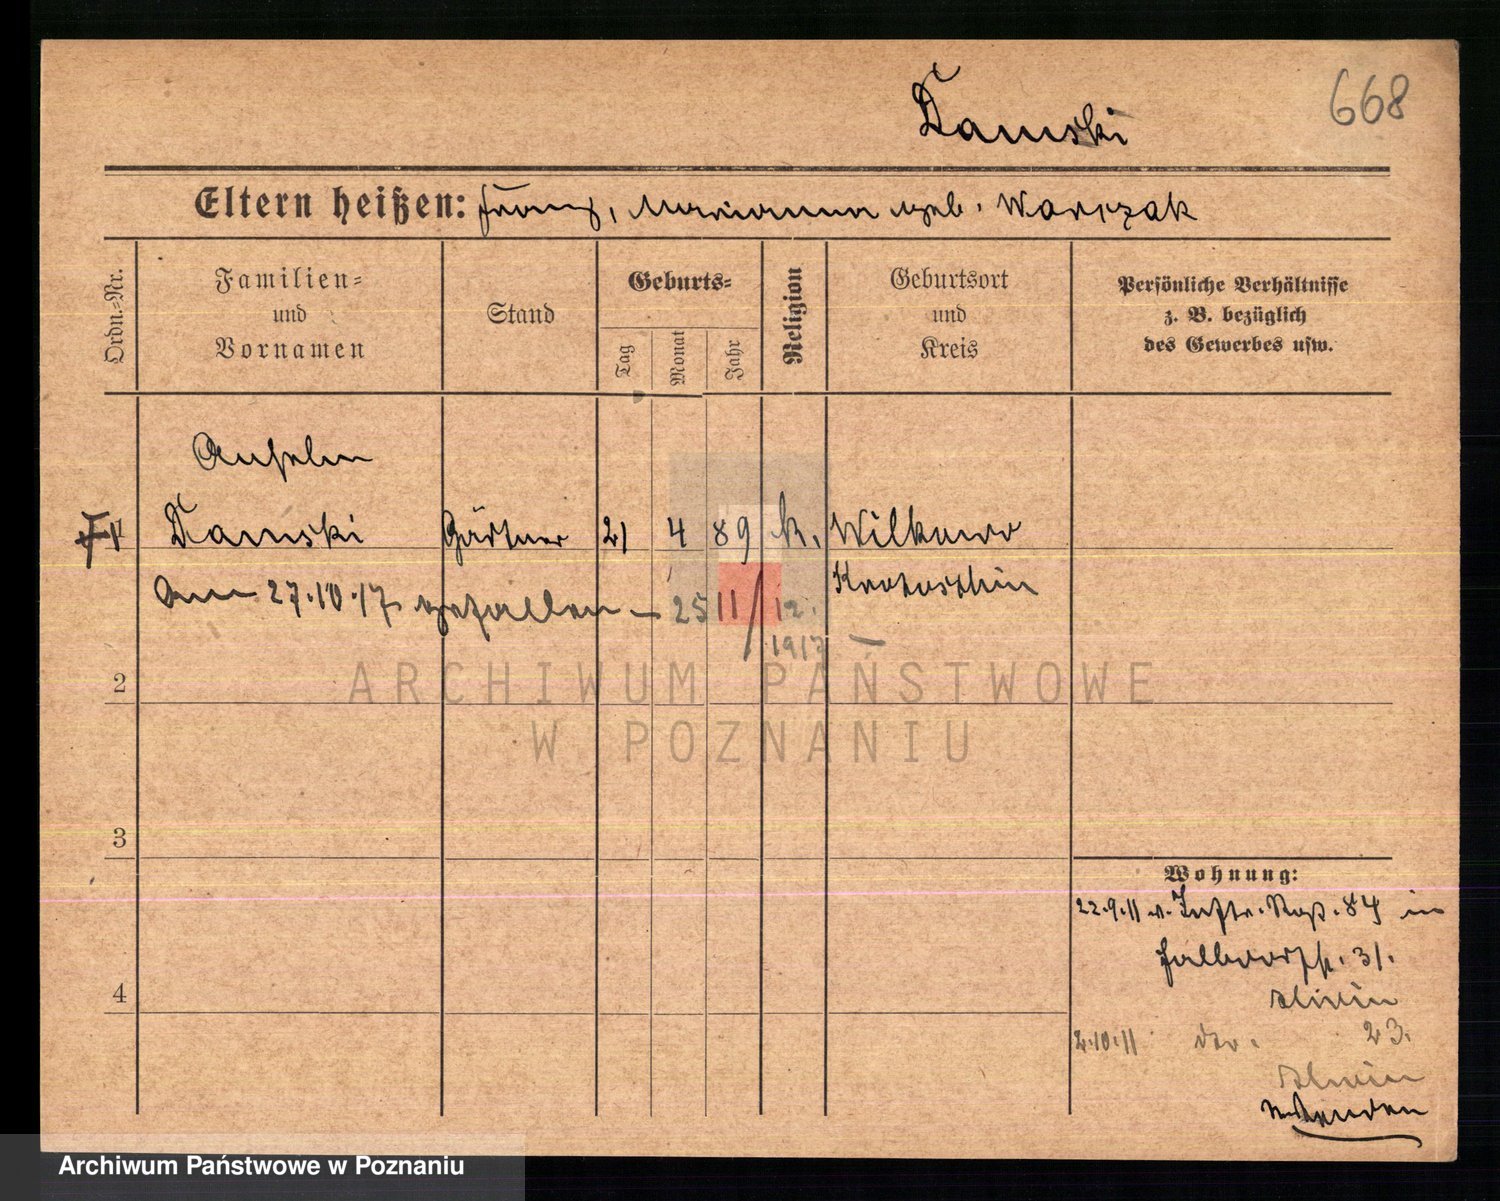 668
Damski
Eltern heißen: Franz, Marianna geb. Warczak
Ordn.-Nr.
Familien-
und
Vornamen
Stand
Geburts-
Tag
Monat
Jahr
Religion
Geburtsort
und
Kreis
Persönliche Verhältnisse
z. B. bezüglich
des Gewerbes usw.
Anselm
1 Damski Gärtner 21 4 89 k. Wilkowo
Krotoschin
Am 27.10.17 gefallen – 25 11/12.
1917 –
ARCHIWUM PAŃSTWOWE
W POZNANIU
2
3
4
Wohnung:
22.9.11 v. Inftr. Rgt. 84 in
31.
2.10.11 23.
Archiwum Państwowe w Poznaniu